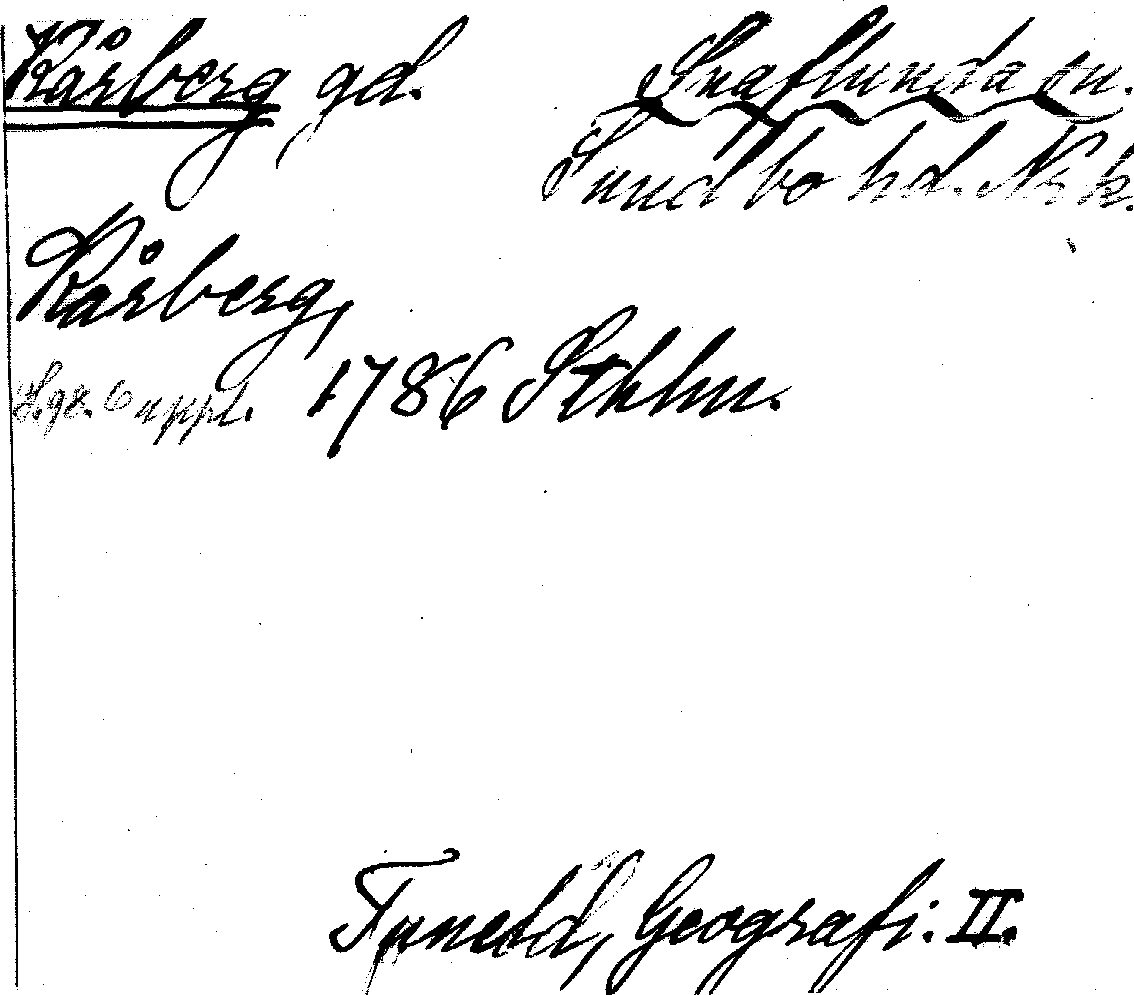 Kårberg gd. Snaflunda sn.
Sundbo hd. Nrk.
Kårberg,
uppl. 1786 Sthlm.
Tuneld, Geografi: II.